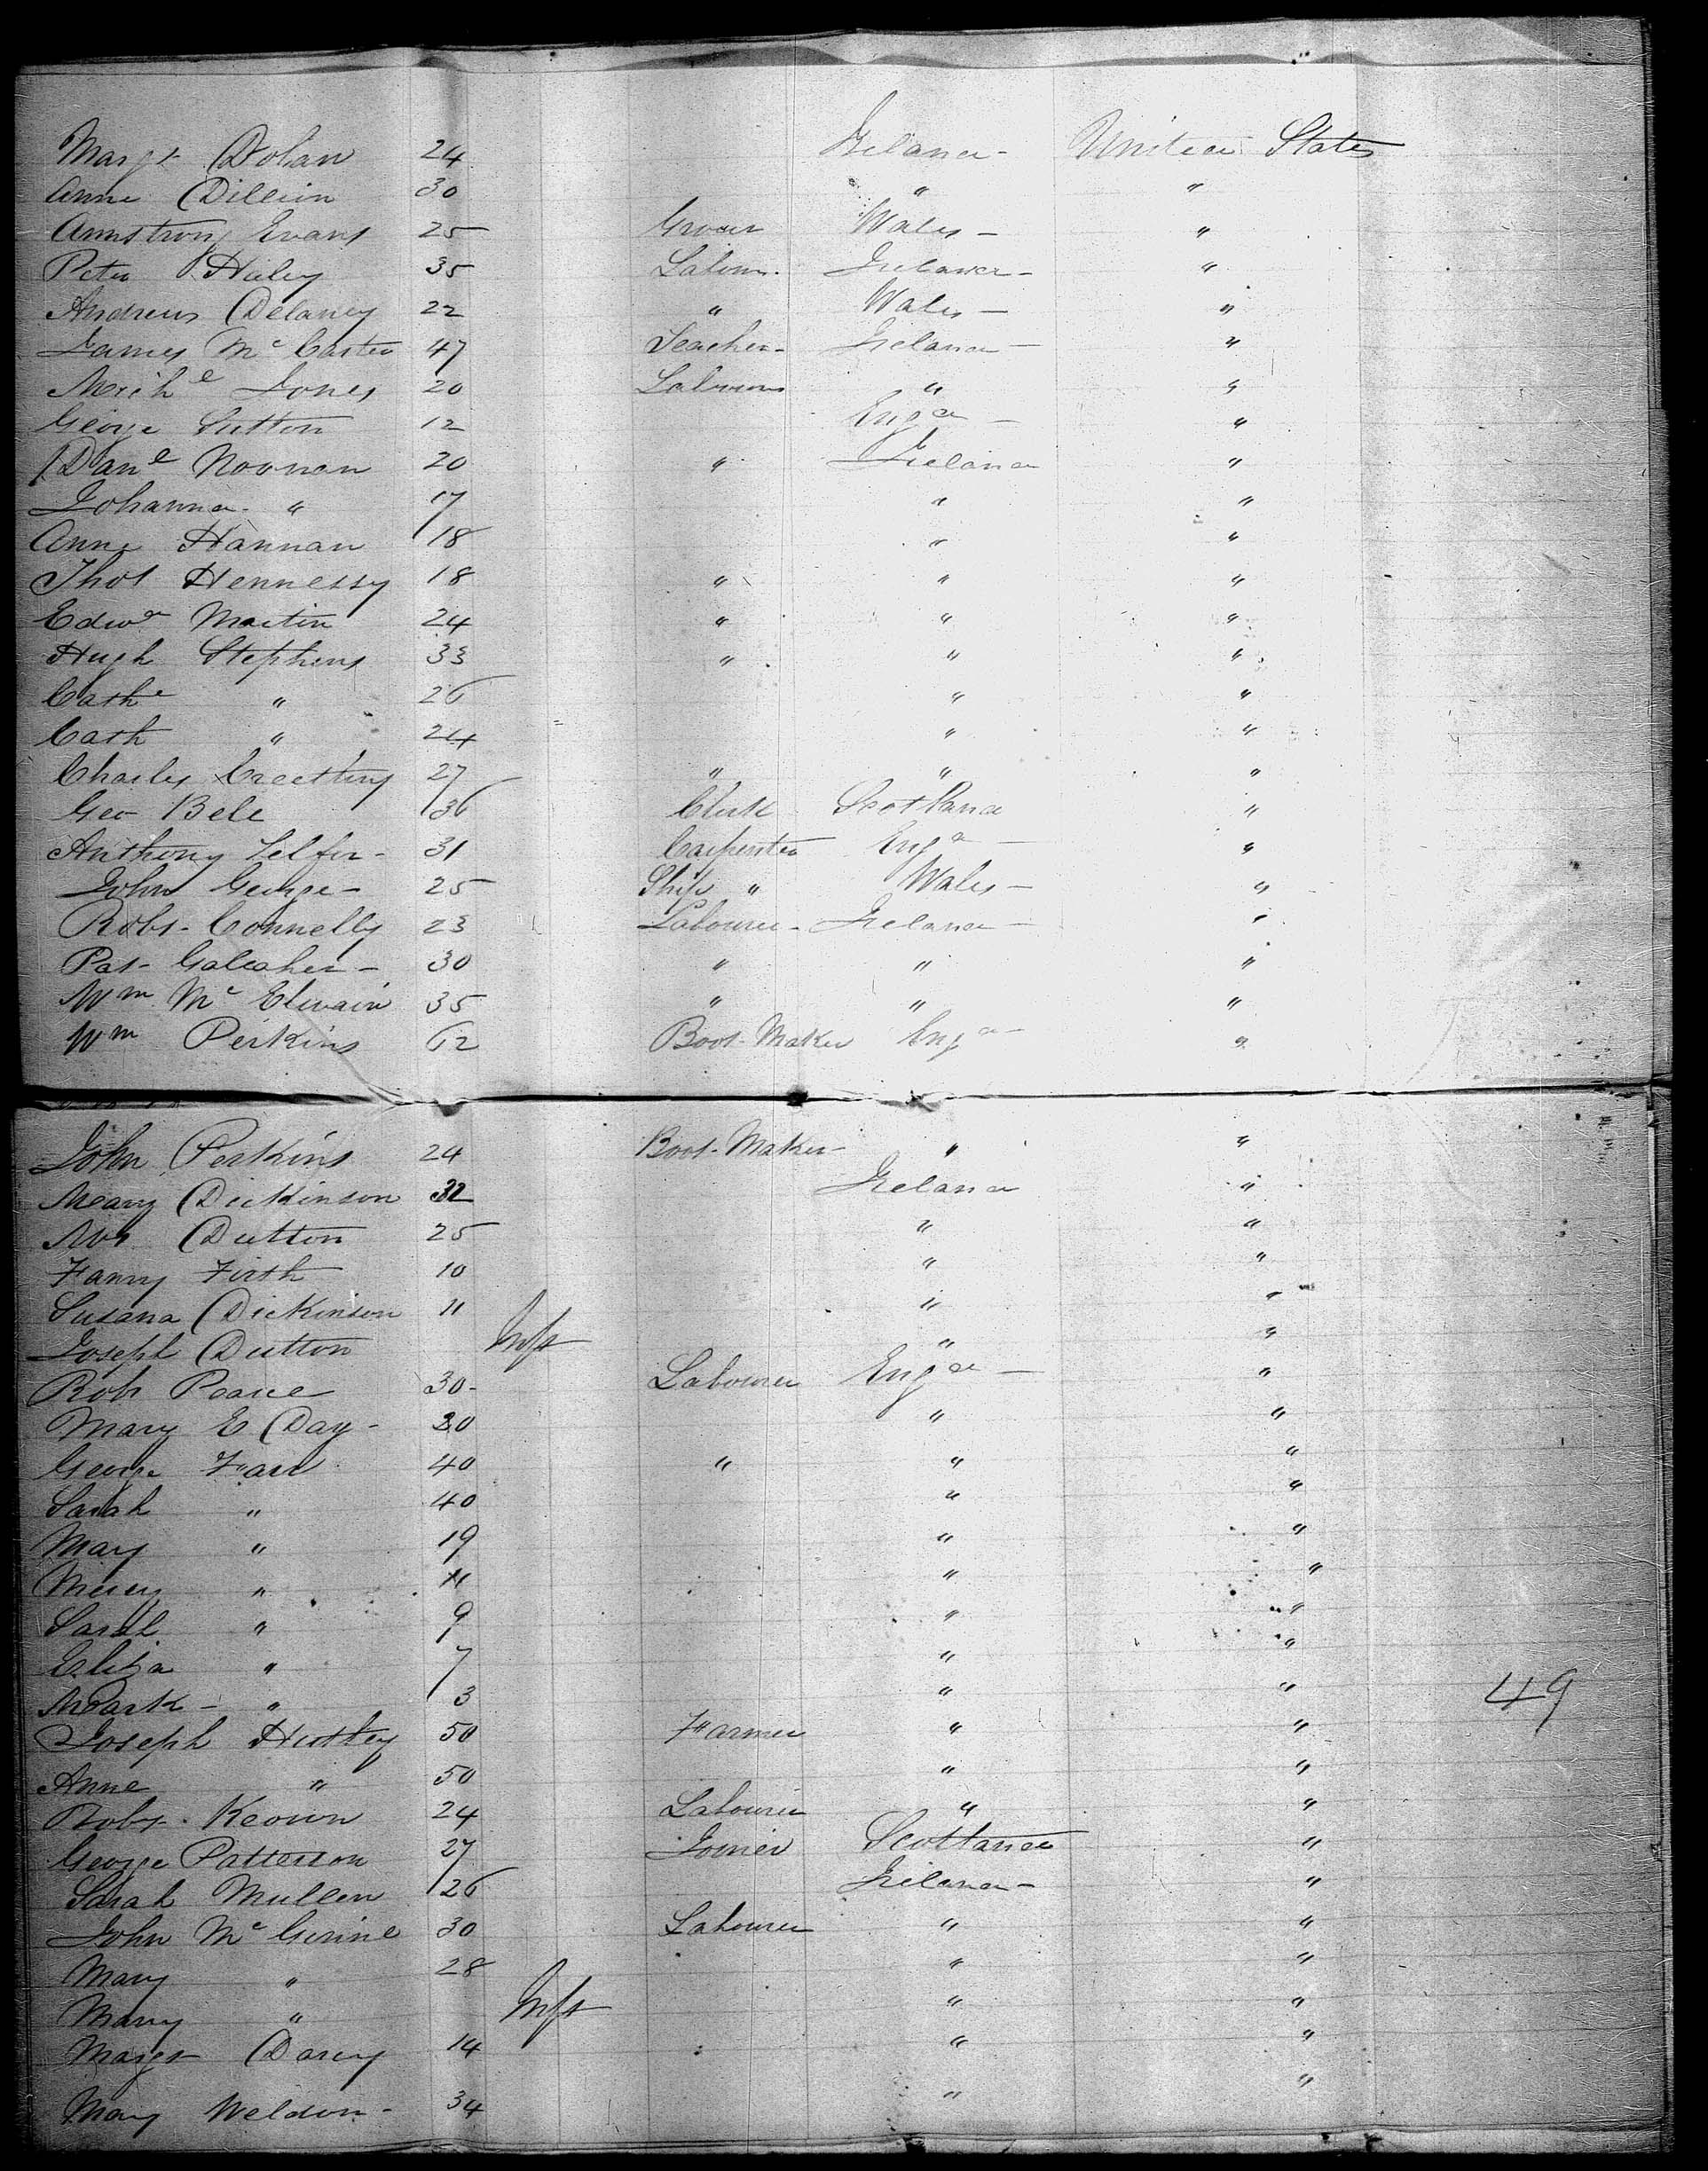 Margt Dolan 24 Ireland - United States
Anne Dillion 30 " "
Armstrong Evans 25 Grocer Wales - "
Peter Hiley 35 Labour. Ireland - "
Andrew Delaney 22 " Wales - "
James Mc Carter 47 Teacher - Ireland - "
Michl Jones 20 Labourer " "
George Sutton 12 Engd - "
Danl Noonan 20 " Ireland "
Johanna " 17 " "
Anne Hannan 18 " "
Thos Hennessy 18 " " "
Edwd Martin 24 " " "
Hugh Stephens 33 " " "
Cathe " 26 " "
Cath " 24 " "
Charles 27 " " "
Geo Bell 36 Clerk Scotland "
Anthony Telfer - 31 Carpenter Engd - "
John George - 25 Ship " Wales - "
Robt - Connelly 23 Labourer - Ireland - "
Pat - Galeaher - 30 " " "
Wm Mc Elwain 35 " " "
Wm Perkins 62 Boot-Maker Engd - "
John Perkins 24 Boot-Maker - " "
Mary Dickinson 32 Ireland "
Mrs Dutton 25 " "
Fanny Firth 10 " "
Susana Dickinson 11 " "
Joseph Dutton Inft " "
Robt Pearce 30 - Labourer Engd - "
Mary E Day - 30 " "
George Farr 40 " " "
Sarah " 40 " "
Mary " 19 " "
Mercy " 11 " "
Sarah " 9 " "
Eliza " 7 " "
Mark - " 3 " " 49
Joseph Hutley 50 Farmer " "
Anne " 50 " "
Robt. Keown 24 Labourer " "
George Patterson 27 Joiner Scotland "
Sarah Mullen 26 Ireland - "
John Mc 30 Labourer " "
Mary " 28 " "
Mary " Inft " "
Margt Darcy 14 " "
Mary Weldon - 34 " "